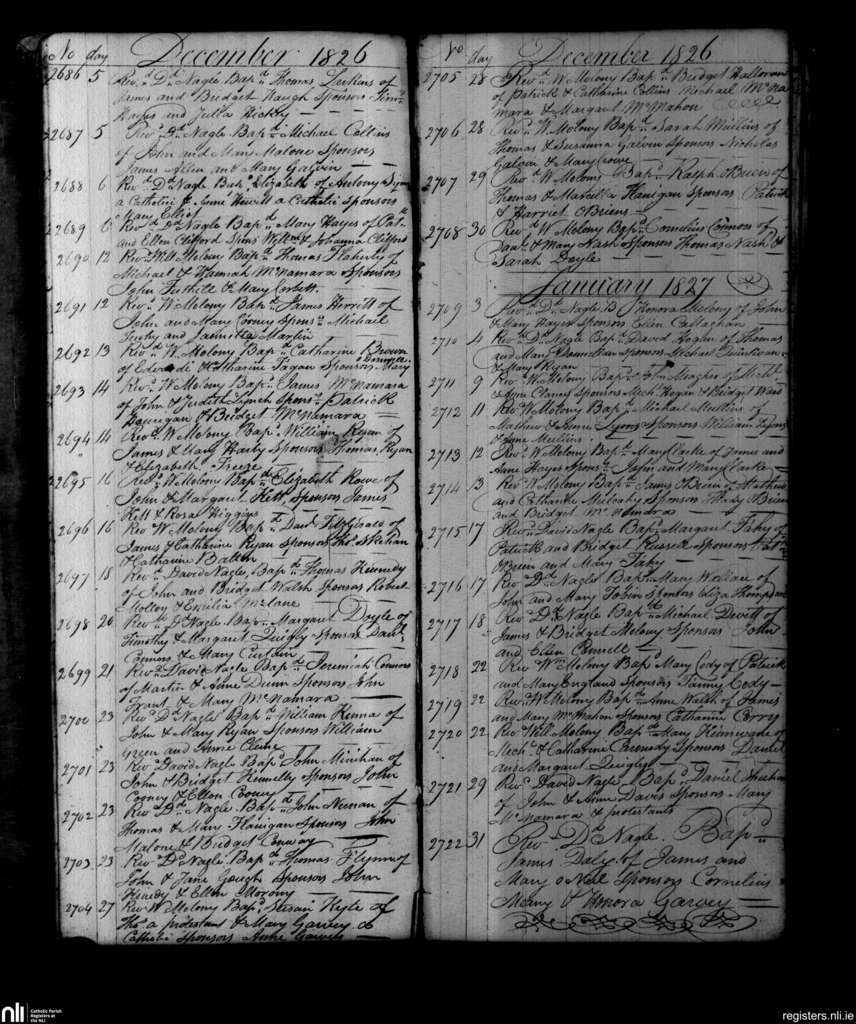 No day December 1826
2686 5 Revd. Dd. Nagle Bapd. Thomas of
James and Bridget Waugh Sponsors Timy.
Hayes and Julia
2687 5 Revd. Dd. Nagle Bapd. Michael Collins
of John and Mary Malone Sponsors
James Allen and Mary Galvin
2688 6 Revd. Dd. Nagle Bapd. Elizabeth of Antony
a Catholic & Anne Hewitt a Catholic Sponsors
Mary Elliot
2689 6 Revd. Dd. Nagle Bapd. Mary Hayes of Patk.
and Ellen Clifford Spons & Johanna Clifford
2690 12 Revd. Will Molony Bapd. Thomas Flaherty of
Michael & Hannah McNamara Sponsors
John & Mary Corbett
2691 12 Revd. W Molony Bapd. James of
John and Mary Sponsrs. Michael
and Martin
2692 13 Revd. W. Molony Bapd. Catharine Brown
of Edward & Catharine Fagan Sponsors Mary
2693 14 Revd. W Molony Bapd. James McNamara
of John & Judith Lynch Spons. Patrick
& Bridget McNamara
2694 14 Revd. W Molony Bapd. William Ryan of
James & Mary Sponsors Thomas Ryan
& Elizabeth Freeze
2695 16 Revd. W Molony Bapd. Elizabeth Rowe of
John & Margaret Kett Sponsors James
Kett & Rosa Higgins
2696 16 Rev W Molony Bapd. Davd. Fitzgerald of
James & Catharine Ryan Sponsors Thos.
& Catharine
2697 18 Revd. David Nagle, Bapd. Thomas Kennedy
of John and Bridget Walsh Sponsors Robert
Molloy & Emilia
2698 20 Revd. Dd. Nagle Bapd. Margaret Doyle of
Timothy & Margaret Quigly Sponsors
Connors & Mary
2699 21 Revd. David Nagle Bapd. Jeremiah Connors
of Martin & Anne Dunn Sponsors John
Grant & Mary McNamara
2700 23 Revd. Dd. Nagle Bapd. William Kenna of
John & Mary Ryan Sponsors William
Green and Annie
2701 23 Revd. David Nagle Bapd. John Minihan of
John & Bridget Kennelly Sponsors John
Cooney & Ellen Cooney
2702 23 Revd. Dd. Nagle Bapd. John Neenan of
Thomas & Mary Flanigan Sponsors John
Malone & Bridget Conway
2703 23 Revd. Dd. Nagle Bapd. Thomas Flynn of
John & Jane Gough Sponsors John
& Ellen Morony
2704 27 Revd. W Molony Bapd. Susan Kyle of
Thos. a protestant & Mary Garvey a
Catholic Sponsors Anne
No day December 1826
2705 28 Revd. W Molony Bapd. Bridget Halloran
of Patrick & Catharine Collins Michael McNa
mara & Margaret McMahon
2706 28 Revd. W. Molony Bapd. Sarah Mullins of
Thomas & Susanna Galvin Sponsors Nicholas
Galvin & Mary Crowe
2707 29 Revd. W Molony Bapd. Ralph OBrien of
Thomas & Marcella Flanigan Sponsors Patrick
& Harriet OBriens
2708 30 Revd. W Molony Bapd. Cornelius Connors of
& Mary Nash Sponsors Thomas Nash &
Sarah Doyle
January 1827
2709 3 Revd. Dd. Nagle B Honora Molony of John
& Mary Hayes Sponsors Ellen Callaghan
2710 4 Revd. Dd. Nagle Bapd. David Hogan of Thomas
and Mary Sponsors Michael
& Mary Ryan
2711 9 Revd. W. Molony Bapd. John Meagher of Michl
& Anne Clancy Sponsors Mich Hogan & Bridget Ward
2712 11 Revd. W Molony Bapd. Michael Mullins of
Mathew & Anne Lyons Sponsors William Lyons
& Anne Mullins
2713 12 Revd. W Molony Bapd. Mary Clarke of James and
Anne Hayes Sponsrs. John and Mary Clarke
2714 3 Revd. W Molony Bapd. James OBrien of
and Catharine Mulcahy Sponsors OBrien
and Bridget McNamara
2715 17 Revd. David Nagle Bapd. Margaret Fahy of
Patrick and Bridget Russell Sponsors
OBrien and Mary Fahy
2716 17 Revd. Dd. Nagle Bapd. Mary Wallace of
John and Mary Tobin Sponsors Eliza Thompson
2717 18 Revd. Dd. Nagle Bapd. Michael Devitt of
James & Bridget Molony Sponsors John
and Ellen Connell
2718 22 Revd. Wm Molony Bapd. Mary Cody of Patrick
and Mary England Sponsors Cody
2719 22 Revd. W Molony Bapd. Anne Walsh of James
and Mary McMahon Sponsors Catharine Corry
2720 22 Revd. Will Molony Bapd. Mary of
Mich. & Catharine Sponsors Daniel
and Margaret Quigley
2721 29 Revd. David Nagle Bapd. Daniel
of John & Anne Davis Sponsors Mary
McNamara & protestants
2722 31 Revd. Dd. Nagle. Bapd.
James Daly of James and
Mary o Neil Sponsors Cornelius
Meany & Honora Garvey
nli
Catholic Parish
Registers at
the NLI
registers.nli.ie